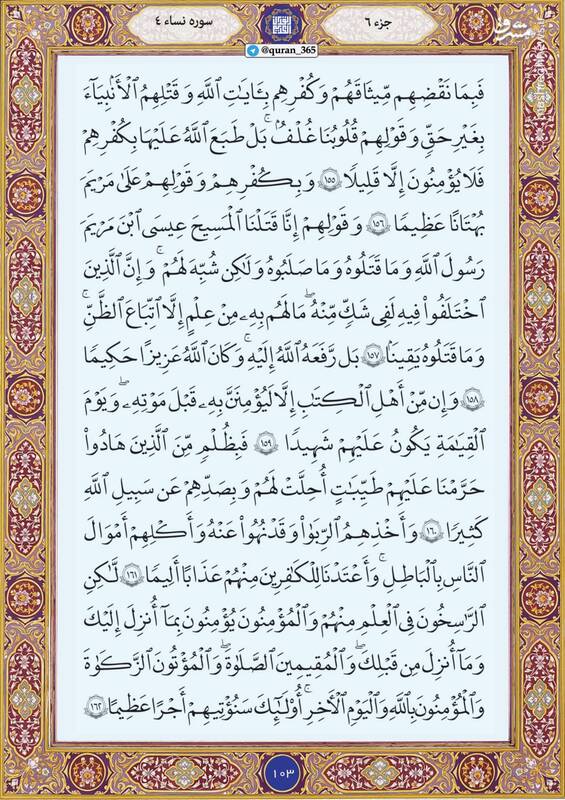 جزء ٦
سوره نساء ٤
@quran_365
فَبِمَا نَقْضِهِم مِّيثَاقَهُمْ وَكُفْرِهِم بِـَٔايَاتِ ٱللَّهِ وَقَتْلِهِمُ ٱلْأَنۢبِيَآءَ
بِغَيْرِ حَقٍّ وَقَوْلِهِمْ قُلُوبُنَا غُلْفٌۢ ۚ بَلْ طَبَعَ ٱللَّهُ عَلَيْهَا بِكُفْرِهِمْ
فَلَا يُؤْمِنُونَ إِلَّا قَلِيلًا ١٥٥ وَبِكُفْرِهِمْ وَقَوْلِهِمْ عَلَىٰ مَرْيَمَ
بُهْتَانًا عَظِيمًا ١٥٦ وَقَوْلِهِمْ إِنَّا قَتَلْنَا ٱلْمَسِيحَ عِيسَى ٱبْنَ مَرْيَمَ
رَسُولَ ٱللَّهِ وَمَا قَتَلُوهُ وَمَا صَلَبُوهُ وَلَٰكِن شُبِّهَ لَهُمْ ۚ وَإِنَّ ٱلَّذِينَ
ٱخْتَلَفُوا۟ فِيهِ لَفِى شَكٍّ مِّنْهُ ۚ مَا لَهُم بِهِۦ مِنْ عِلْمٍ إِلَّا ٱتِّبَاعَ ٱلظَّنِّ ۚ
وَمَا قَتَلُوهُ يَقِينًۢا ١٥٧ بَل رَّفَعَهُ ٱللَّهُ إِلَيْهِ ۚ وَكَانَ ٱللَّهُ عَزِيزًا حَكِيمًا
١٥٨ وَإِن مِّنْ أَهْلِ ٱلْكِتَٰبِ إِلَّا لَيُؤْمِنَنَّ بِهِۦ قَبْلَ مَوْتِهِۦ ۖ وَيَوْمَ
ٱلْقِيَٰمَةِ يَكُونُ عَلَيْهِمْ شَهِيدًا ١٥٩ فَبِظُلْمٍ مِّنَ ٱلَّذِينَ هَادُوا۟
حَرَّمْنَا عَلَيْهِمْ طَيِّبَٰتٍ أُحِلَّتْ لَهُمْ وَبِصَدِّهِمْ عَن سَبِيلِ ٱللَّهِ
كَثِيرًا ١٦٠ وَأَخْذِهِمُ ٱلرِّبَوٰا۟ وَقَدْ نُهُوا۟ عَنْهُ وَأَكْلِهِمْ أَمْوَالَ
ٱلنَّاسِ بِٱلْبَاطِلِ ۚ وَأَعْتَدْنَا لِلْكَافِرِينَ مِنْهُمْ عَذَابًا أَلِيمًا ١٦١ لَّٰكِنِ
ٱلرَّٰسِخُونَ فِى ٱلْعِلْمِ مِنْهُمْ وَٱلْمُؤْمِنُونَ يُؤْمِنُونَ بِمَآ أُنزِلَ إِلَيْكَ
وَمَآ أُنزِلَ مِن قَبْلِكَ ۚ وَٱلْمُقِيمِينَ ٱلصَّلَوٰةَ ۚ وَٱلْمُؤْتُونَ ٱلزَّكَوٰةَ
وَٱلْمُؤْمِنُونَ بِٱللَّهِ وَٱلْيَوْمِ ٱلْأَخِرِ ۚ أُو۟لَٰٓئِكَ سَنُؤْتِيهِمْ أَجْرًا عَظِيمًا ١٦٢
١٠٣